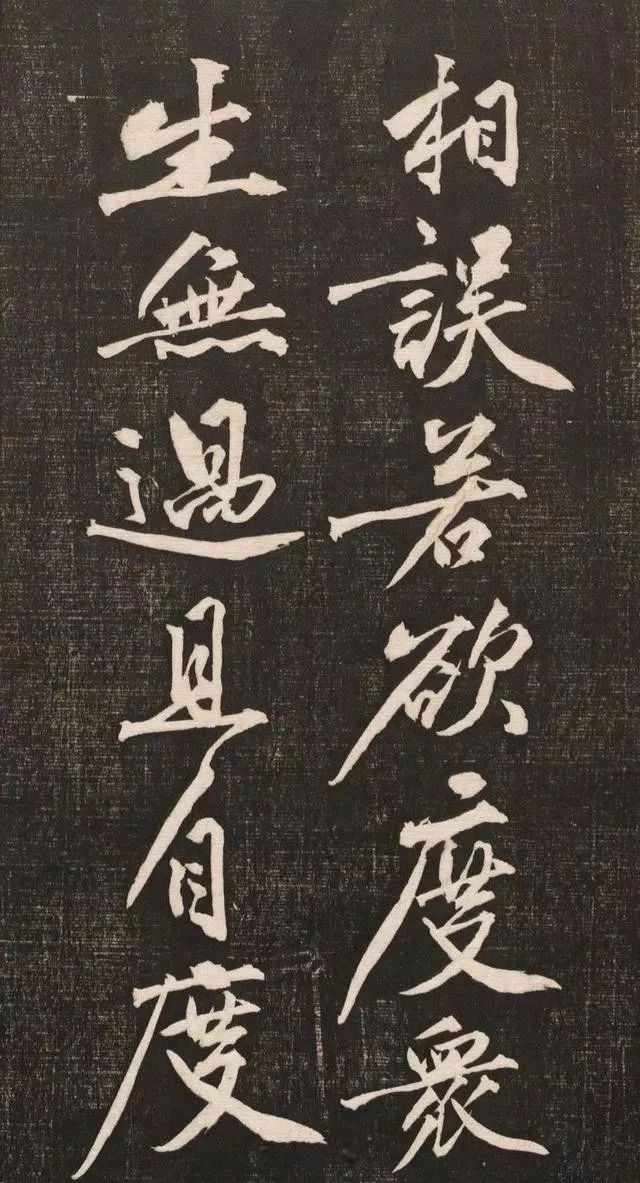 相誤若欲度眾
生無過且自度